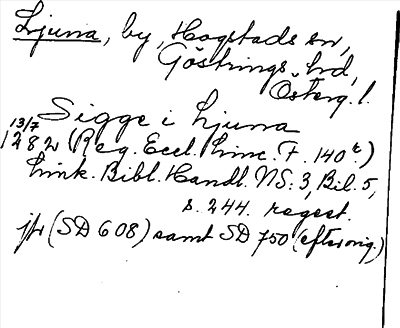 Ljurra, by, Hogstads sn,
Göstrings hd,
Österg. l.
Sigge i Ljurra
13/7
1282 (Reg. Eccl. Linc. F. 140 t)
Link. Bibl. Handl. NS: 3, Bil. 5,
s. 244. regest.
jfr (SD 608) samt SD 750 (efter orig.)